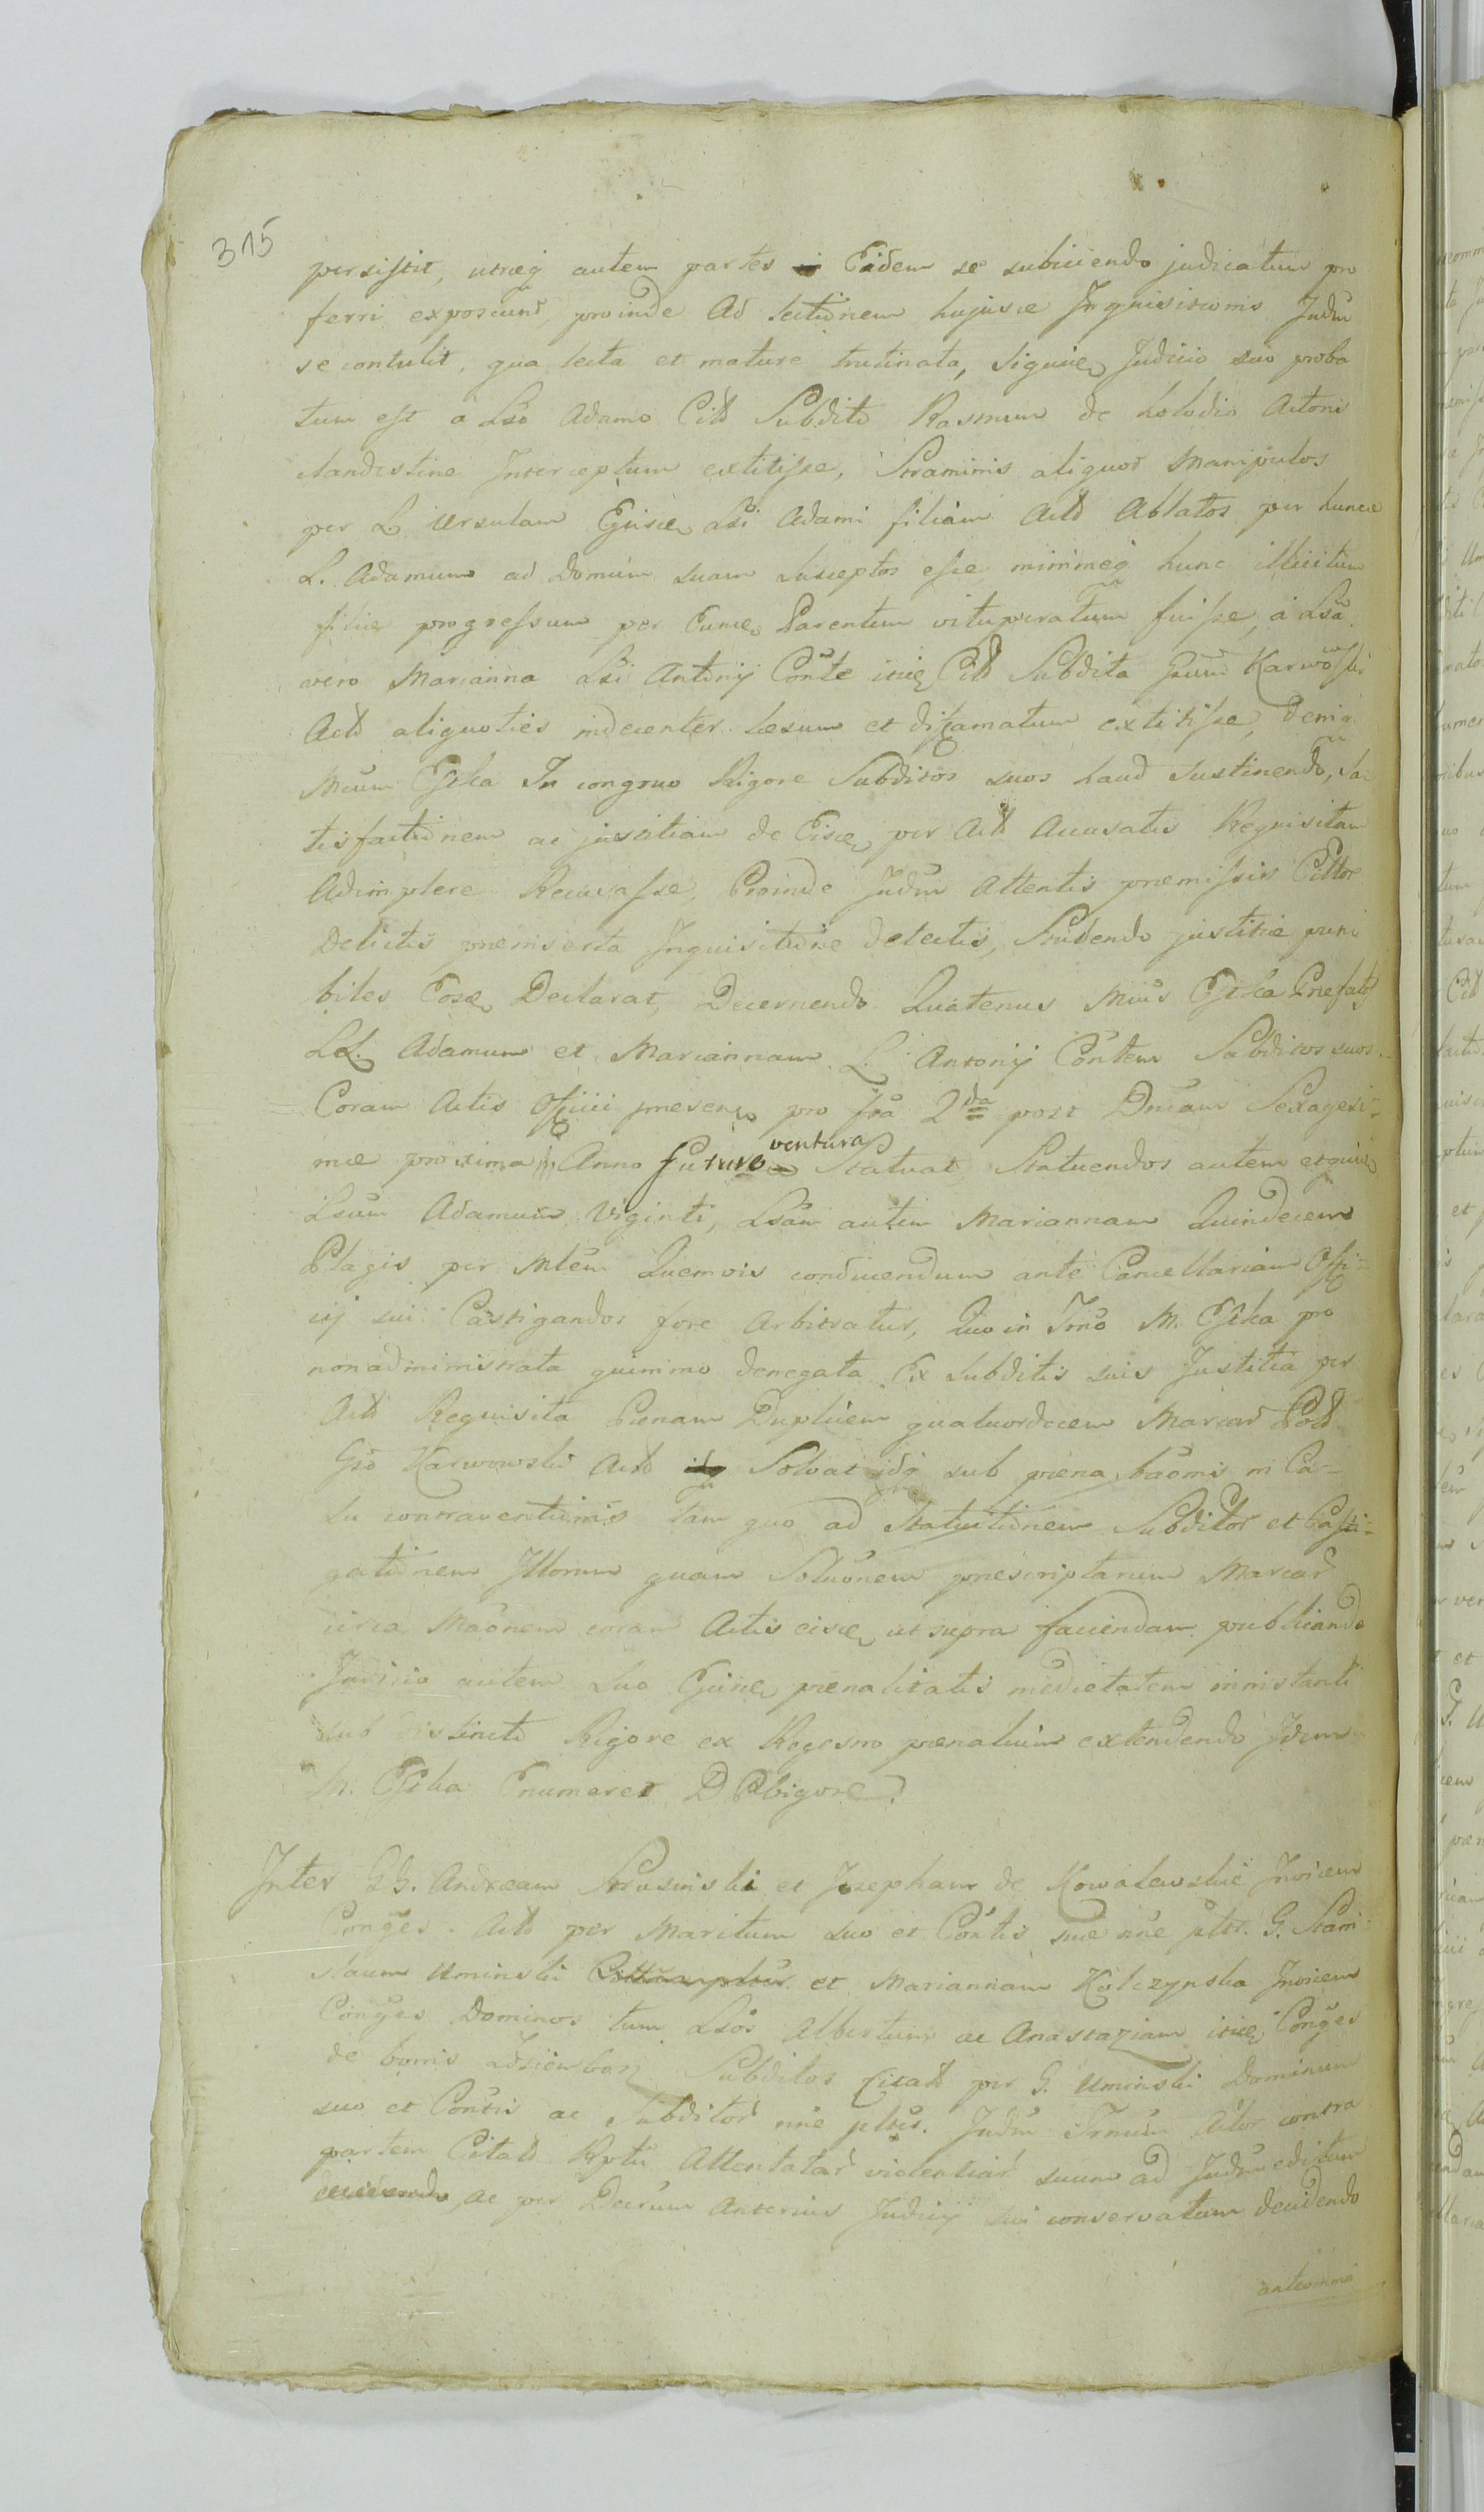 315
persistit, utraeq autem partes Eidem se subiiciendo judicatum pro
ferri exposcunt, proinde Ad lectionem hujusce Inquisitionis Judm
se contulit, qua lecta et mature trutinata, Judicio suo proba
tum est à Lso Adamo Citt Subdito Rasmum de Actoris
clandestine Interceptum extitisse, Straminis aliquot Manipulos
per L Ursulam Ejusce Lsi Adami filiam Actt Ablatos per hunce
L. Adamum ad Domum suam Susceptos esse minimeq hunc illicitum
filiae progressum per Eunce Parentem vituperatum fuisse, à Lsa
vero Marianna Lsi Antonij Conte Citt Subdita Gsum Karwowski
Actt aliquoties indecenter laesum et diffamatum extitisse, deniq
Mcum In congruo Rigore Subditos suos haud Sustinendo, Sa-
tisfactionem ac justitiam de Eisce per Actt Accusatis Requisitam
Adimplere Recusasse, Proinde Judm Attentis praemissis Cittor
Delictis praeinserta Inquisitione detectis, Studendo justitiae puni
biles Eosce Declarat, Decernendo Quatenus Mcus Praefatos
LL. Adamum et Mariannam L. Antonij Contem Subditos suos
Coram Actis Officii praesen pro fra 2da post Dnicam Sexagesi-
mae proxima Anno futuro ventura Statuat, Statuendos autem
Lsum Adamum Viginti, Lsam autem Mariannam Quindecem
Plagis per Mlem Quemvis conducendum ante Cancellariam Offi-
cij sui Castigandos fore Arbitratur, Quo in Tmo M. pro
non administrata quinimo denegata Ex Subditis suis Justitia per
Actt Requisita Poenam Duplicem quatuordecem Marcar Poll
Gso Karwowski Actt Solvat idq sub poena baomis in Ca-
su contraventionis tam quo ad Statuitionem Subditor et Casti-
gationem Illorum quam Soluonem praescriptarum Marcar
circa coram Actis eisce ut supra faciendam publicanda
Judicio autem Suo Ejusce poenalitatis medietatem in instanti
sub districto Rigore ex Regestro poenalium extendendo Idem
M. Enumeret D Obligore

Inter GG. Andream Strusinski et Josepham de Kowalewskie Invicem
Conges Actt per Maritum suo et Contis suae nne pltt. G. Stani-
slaum Uminski et Mariannam Kolczynska Invicem
Conges Dominos tum Lsos Albertum ac Anastaziam Conges
de bonis Subditos Citatt per G. Uminski Dominum
suo et Contis ac Subditor nne pltes. Judm Trnum Ador contra
partem Citatt Attentatar violentiar suum ad Judm editum
ac per Decrum Anterius Judicij sui conservatum decidendo
anteomne